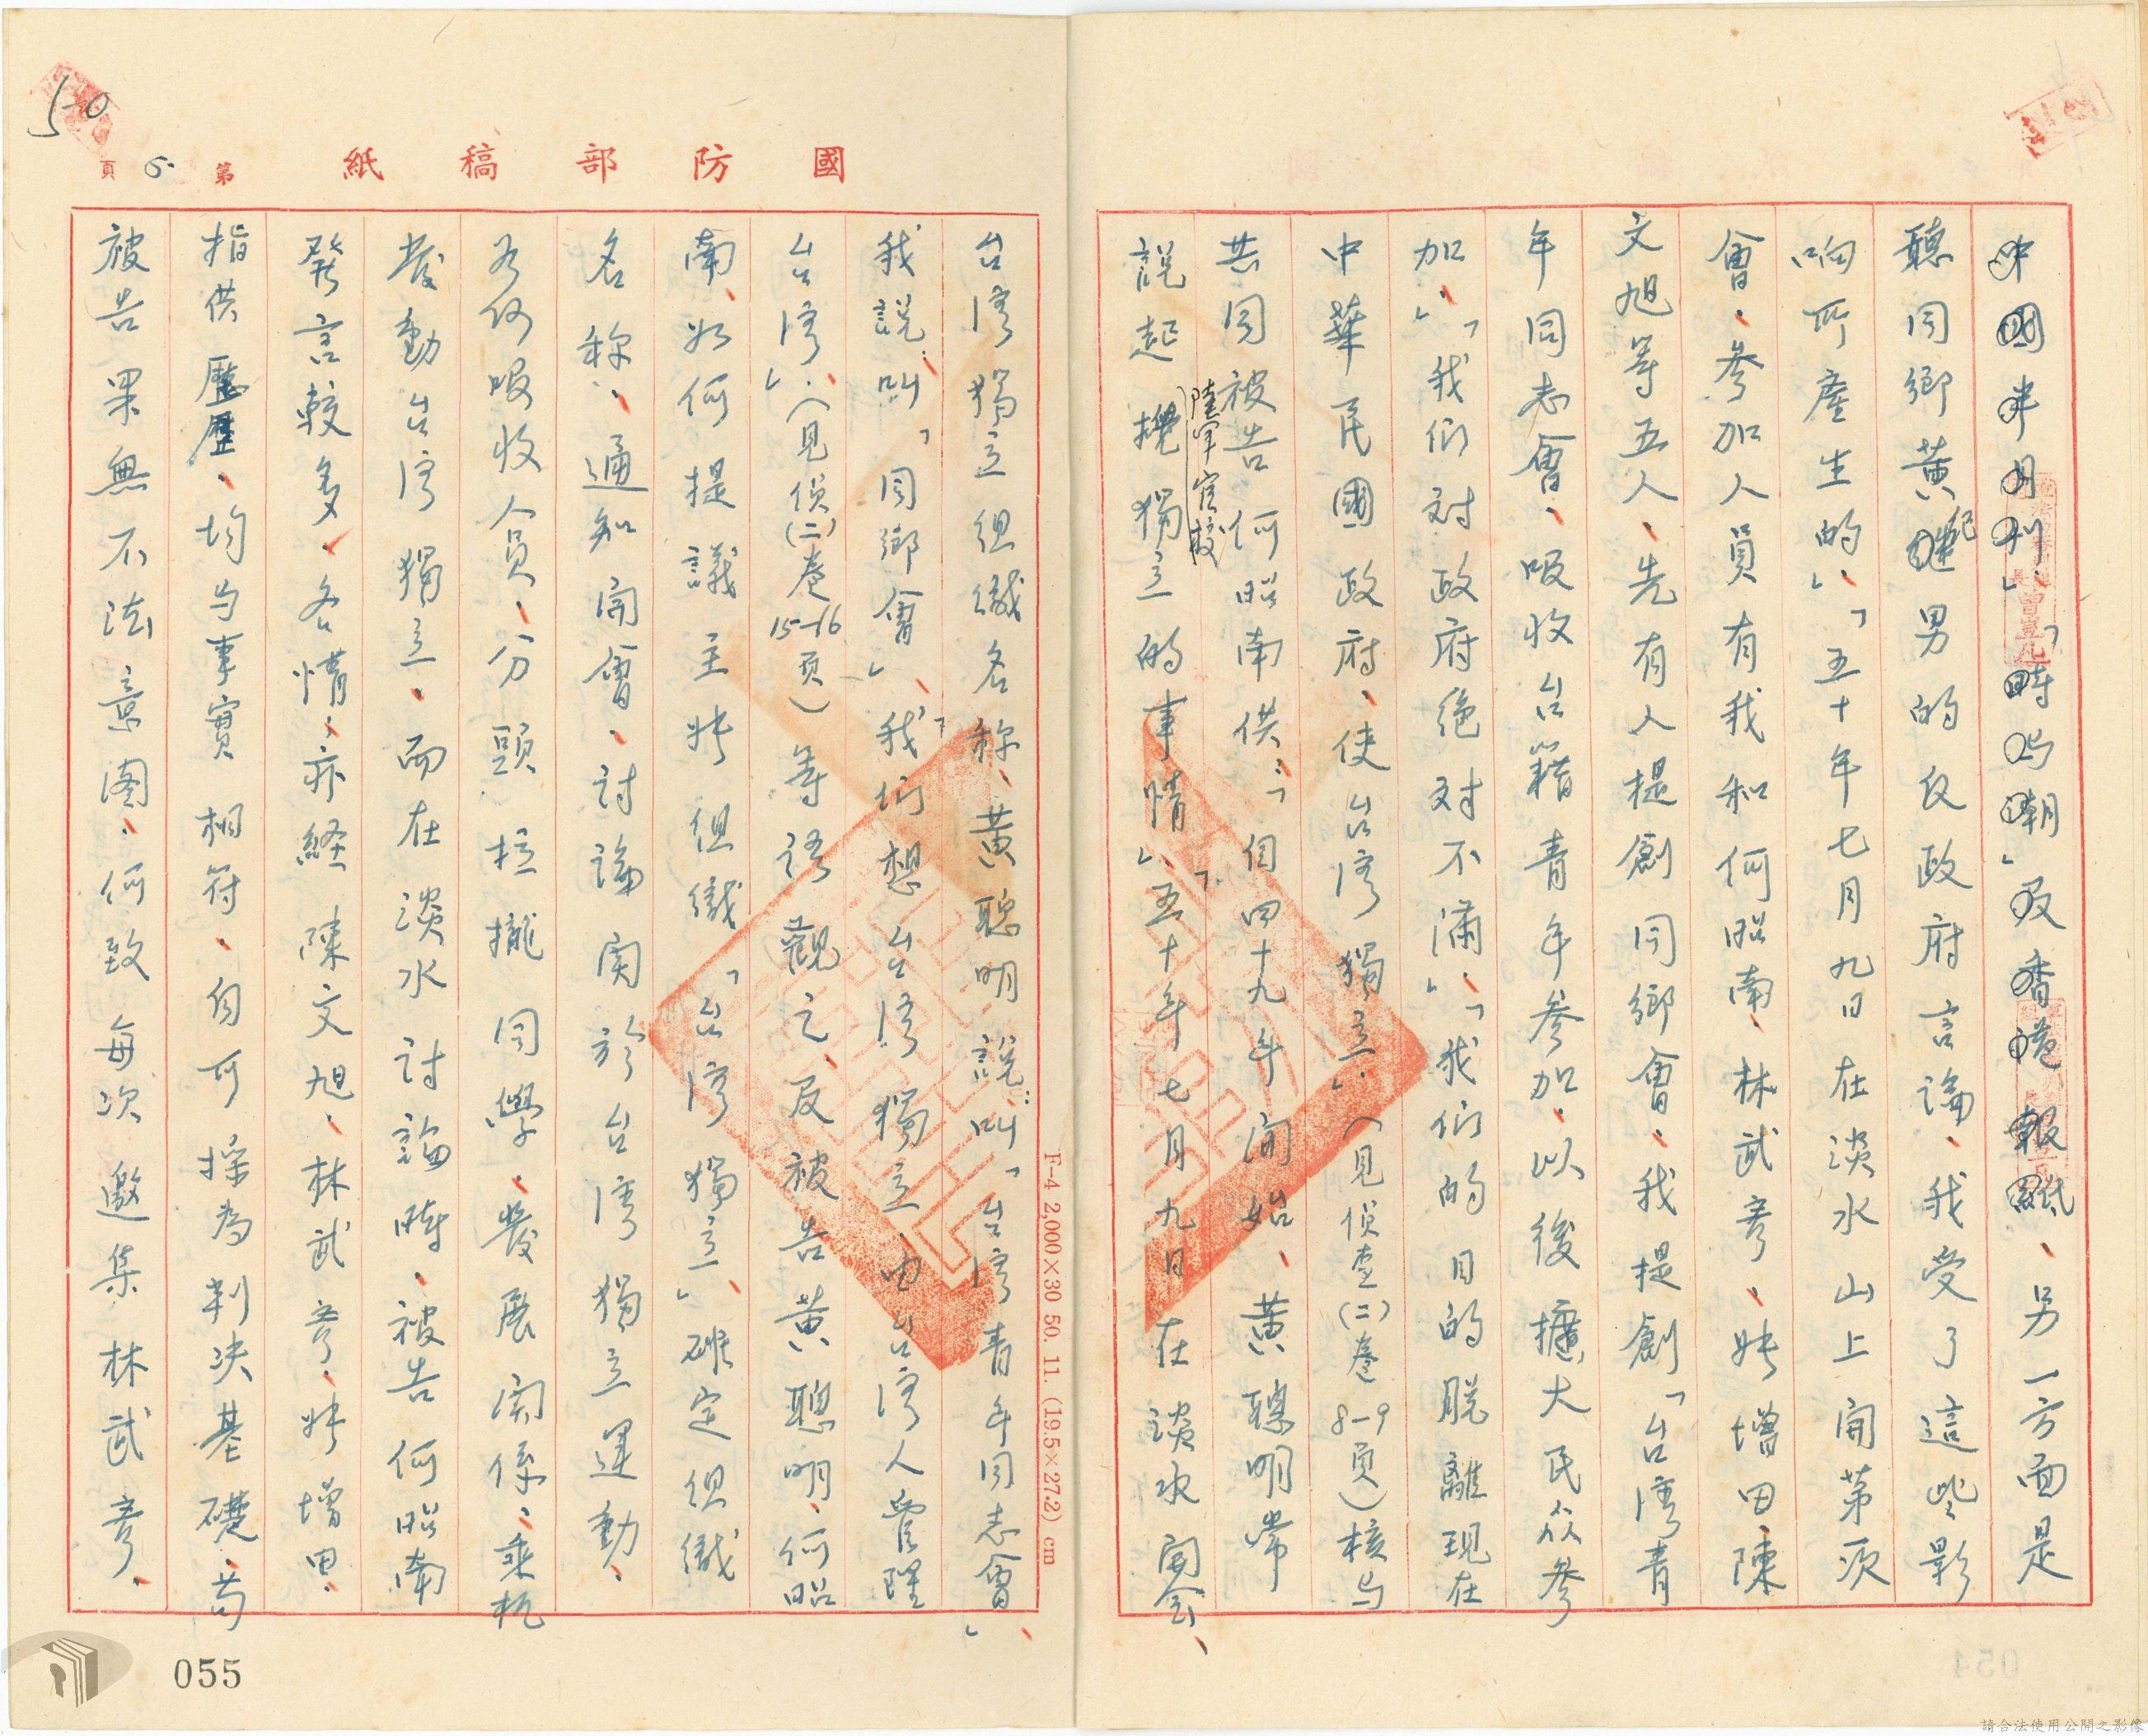 中國半月刊」、「時与潮」及香港報紙、另一方面是
聽同鄉黃紀男的反政府言論、我受了這些影
响所產生的」、「五十年七月九日在淡水山上開第一次
會、參加人員有我和何昭南、林武彥、姚增田、陳
文旭等五人、先有人提創同鄉會、我提創「台湾青
年同志會、吸收台籍青年參加、以後擴大民眾參
加」、「我们对政府绝对不滿」、「我们的目的脫離現在
中華民國政府、使台湾獨立」、（見偵查(二)卷8—9頁）核与
共同被告何昭南供：「自四十九年開始、黃聰明常
陸军官校
說起攪獨立的事情」、「五十年七月九日在淡水開会、
國防部稿紙
第5頁
50
台湾獨立組織名称、黃聰明說：叫「台湾青年同志會」、
我說：叫「同鄉會」、「我们想台湾獨立、由台湾人管理
台湾」、（見偵(二)卷15—16頁）等語觀之、及被告黃聰明、何昭
南、如何提議主張組織「台湾獨立」、確定組織
名称、通知開會、討論関於台湾獨立運動、
如何吸收人員、分頭拉攏同學、發展関係、乘机
發動台湾獨立、而在淡水討論時、被告何昭南
發言較多、各情、亦経陳文旭、林武彥、姚增田、
指供歷歷、均与事實相符、自可採為判决基礎、苟
被告果無不法意圖、何致每次邀集林武彥、
F-4 2,000×30 50. 11. (19.5×27.2) cm
055
請合法使用公開之影像